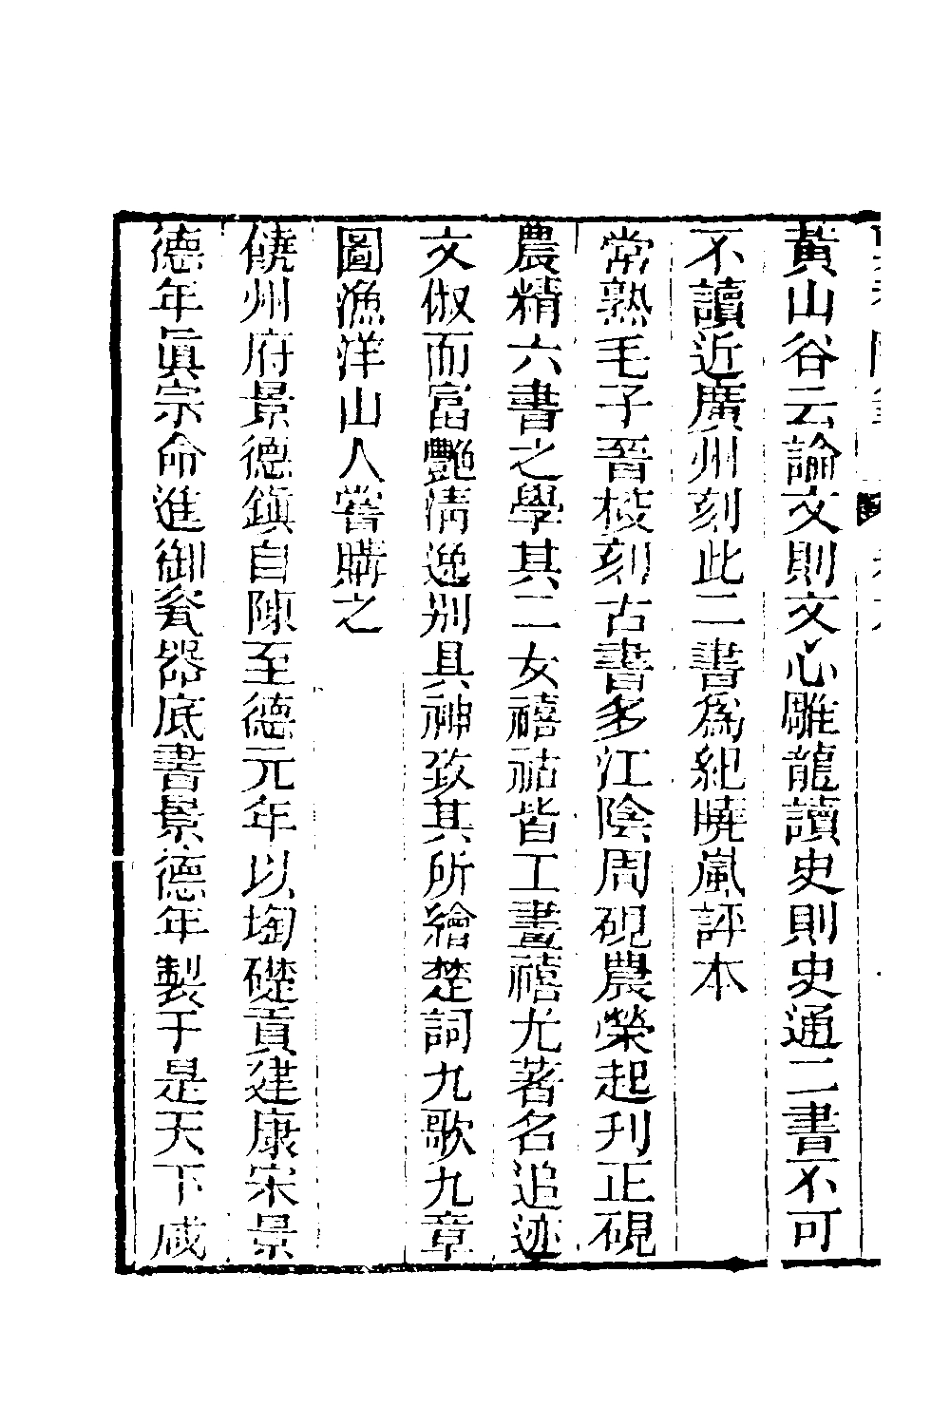 黃山谷云論文則文心雕龍讀史則史通二書不可
不讀近廣州刻此二書爲紀曉嵐評本
常熟毛子晉校刻古書多江陰周硯農榮起刊正硯
農精六書之學其二女禧祜皆工畫禧尤著名追迹
文俶而富艷淸逸別具神致其所繪楚詞九歌九章
圖漁洋山人嘗購之
饒州府景德鎮自陳至德元年以陶礎貢建康宋景
德年眞宗命進御瓷器底書景德年製于是天下咸